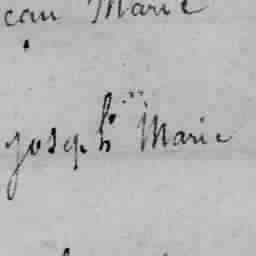 Jean Marie
joseph Marie